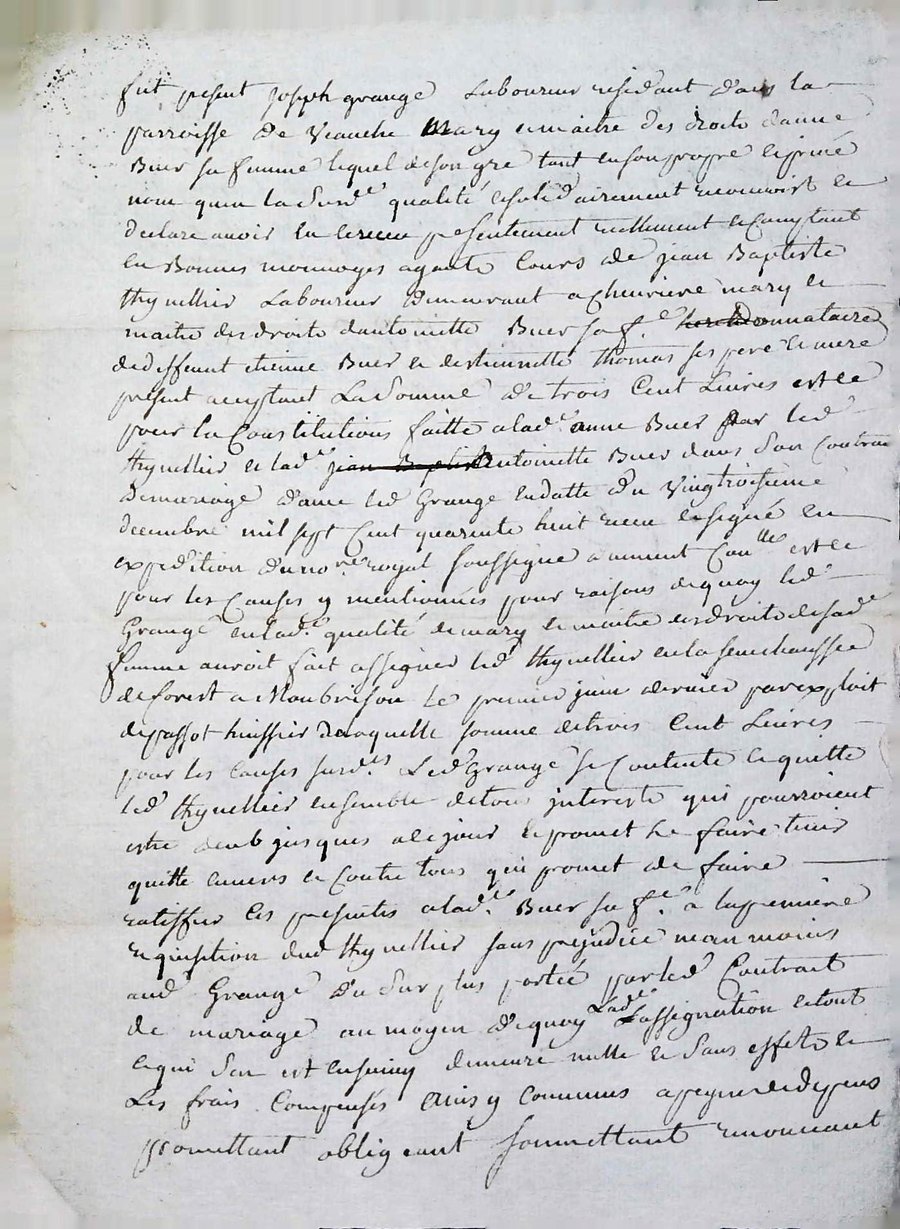 fut present Joseph grange Laboureur residant dans la
parroisse de Veauche Mary et maitre des droits danne
Buer sa femme lequel de son gre tant en son propre et privé
nom quen la Surd.e qualité et solidairement reconnoist et
declare avoir eu et receu presentement reellement et Comptant
en Bonnes monnoyes ayants Cours de jean Baptiste
thynellier Laboureur demeurant a Chevriere mary et
maitre des droits dantoinette Buer sa f.e donnataire
de deffunt etienne Buer et destiennette thomas ses pere et mere
present acceptant La Somme de trois Cent Livres est ce
pour la Constitutions faitte a lad.e anne Buer par led
thynellier et lad.e jean Baptiste antoinette Buer dans Son Contrat
de mariage d'avec led Grange en datte du Vingtroisieme
decembre mil sept Cent quarente huit receu et signé en
expedition du no.re royal Soussigné dument Con.lle est ce
pour les Causes y mentionnées pour raisons de quoy led
Grange en lad.e qualité de mary et maitre des droits de sad.e
femme auroit fait assigner led thynellier en la senechaussée
de forest a Monbrison Le premier juin dernier par exploit
de passot huissier De laquelle somme de trois Cent Livres
pour les Causes surd.es Led Grange se Contente et quitte
led thynellier ensemble de tous interests qui pourroient
estre deub jusques a ce jour et promet Le faire tenir
quitte envers et Contre tous qui promet de faire
ratiffier les presentes a lad.e Buer sa f.e a la premiere
requisition dud thynellier sans prejudice neanmoins
aud Grange du Surplus porté par led Contrait
de mariage au moyen de quoy Lad.e Lassignation et tout
ce qui Sen est ensuivy demeure nulle et Sans effets et
Les frais Compensés Ainsy Convenus a peyne de depens
promettant obligeant soumettant renonceant